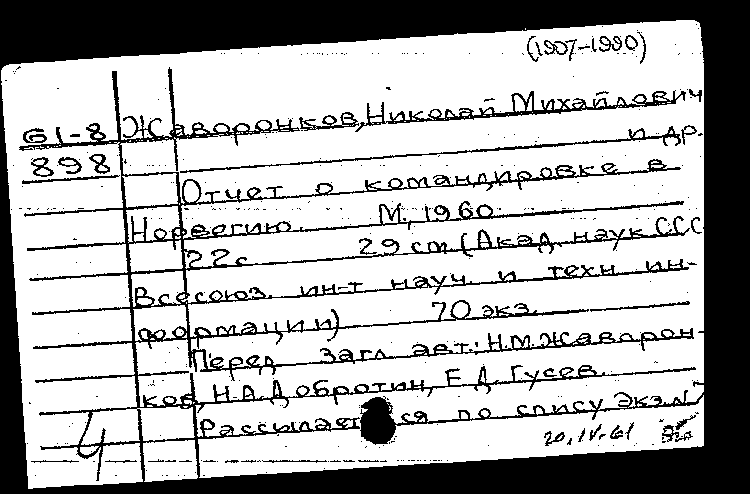 (1907-1990)
61-8 Жаворонков, Николай Михайлович
898 и др.
Отчет о командировке в
Норвегию. М., 1960.
22с 29 см (Акад. наук ССС
Всесоюз. ин-т науч. и техн ин-
формации) 70 экз.
Перед загл авт.: Н.М. Жаворон-
ков, Н.А. Добротин, Е.Д. Гусев.
Рассылается по спису. Экз. N 7
4 20.IV-61